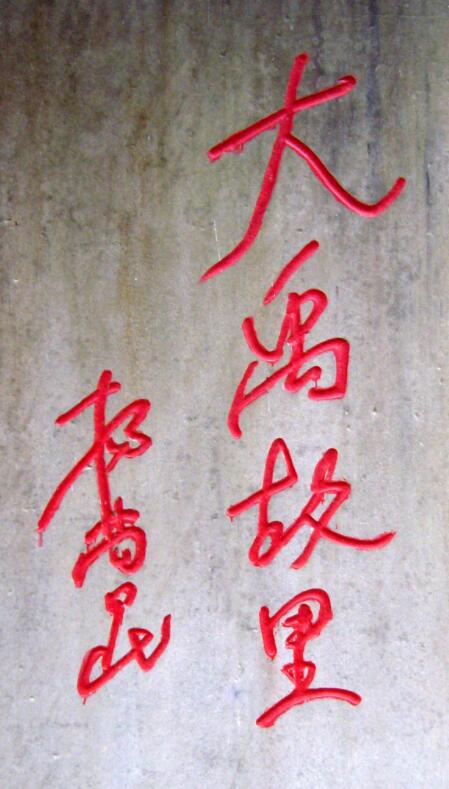 大禹故里
杨尚昆